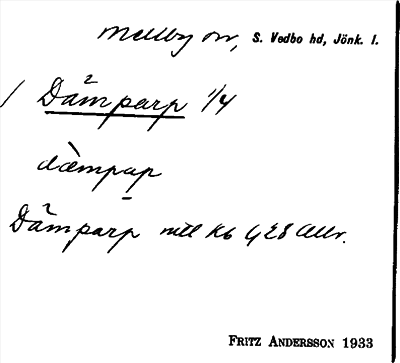 Mellby sn, S. Vedbo hd, Jönk. l.
/ Dämparp 1/4
dàmpap
Dämparp mtl Kb G E8 Allr.
FRITZ ANDERSSON 1933